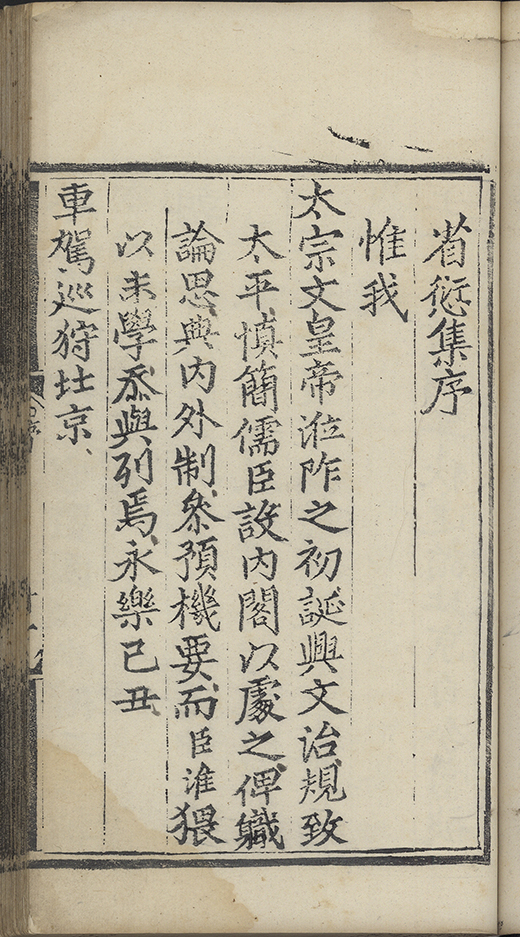 省愆集序
惟我
太宗文皇帝涖阼之初誕興文治規致
太平慎簡儒臣設內閣以處之俾職
論思典內外制叅預機要而臣淮猥
以末學忝與列焉永樂己丑
車駕巡狩北京